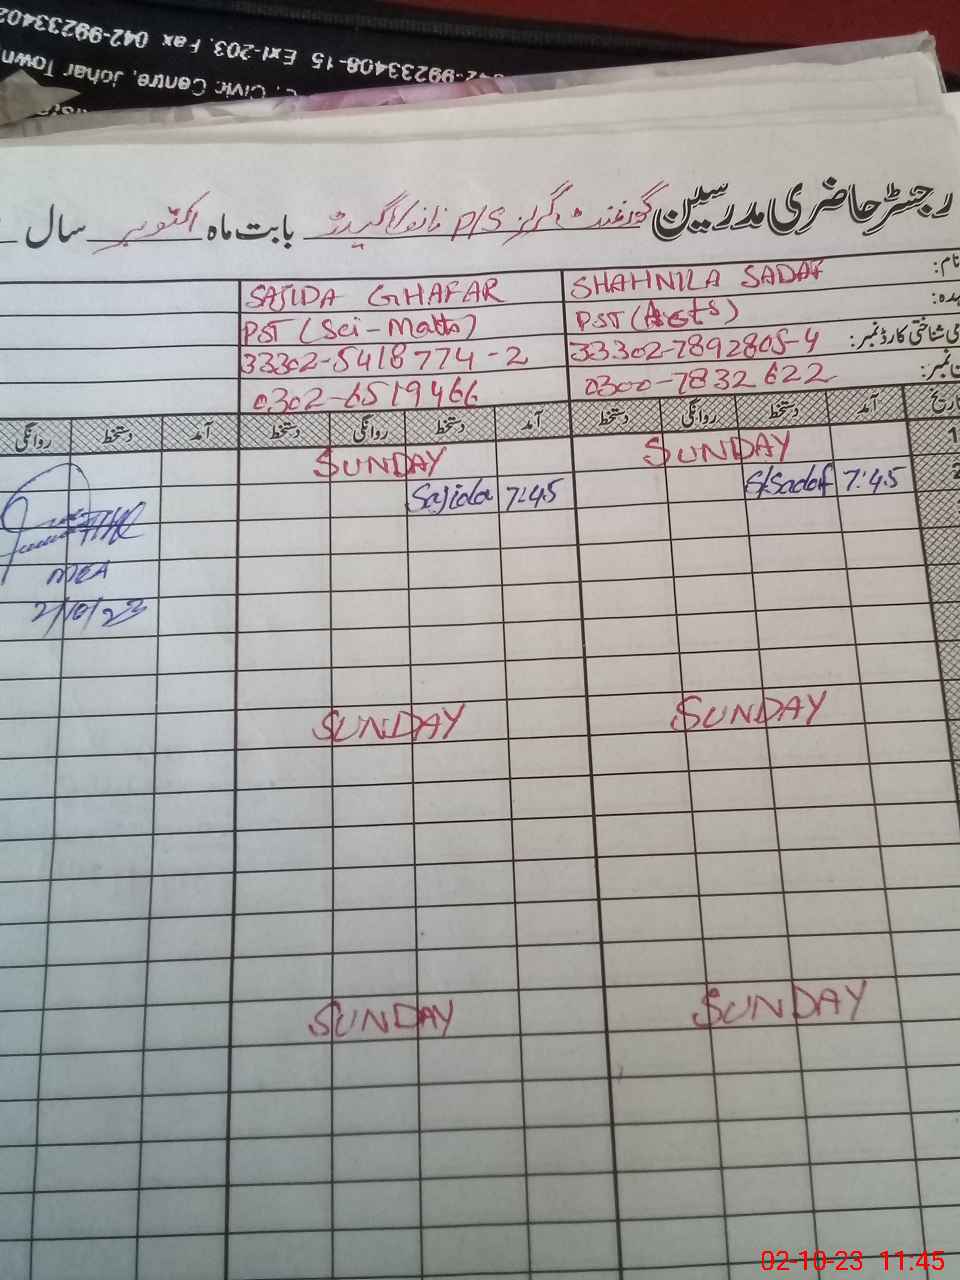 042-99233408-15 Ext-203, Fax 042-99233402
Civic Centre, Johar Town
رجسٹر حاضری مدرسین گورنمنٹ گرلز P/S بابت ماہ اکتوبر سال
نام: SHAHNILA SADAF SAJIDA GHAFAR
عہدہ: PST (Arts) PST (Sci-Math)
شناختی کارڈ نمبر: 33302-7892805-4 33302-5418774-2
نمبر: 0300-7832622 0302-6519466
تاریخ آمد دستخط روانگی دستخط آمد دستخط روانگی دستخط آمد دستخط روانگی
1 SUNDAY SUNDAY
2 7:45 S.Sadaf 7:45 Sajida
MEA
2/10/23
SUNDAY SUNDAY
SUNDAY SUNDAY
02-10-23 11:45